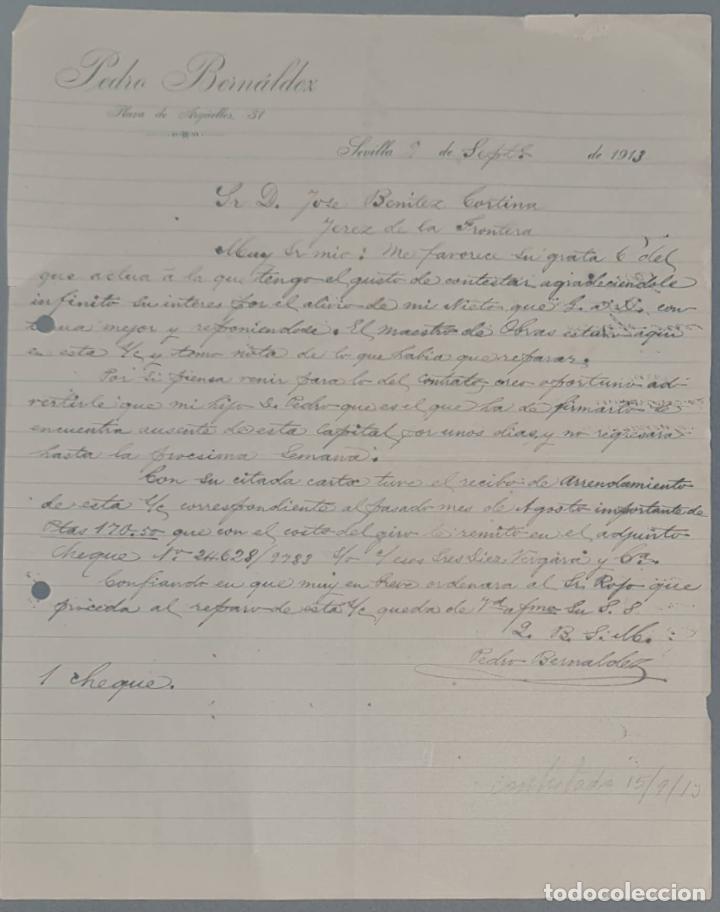 Pedro Bernáldez
Plaza de Argüelles, 31
Sevilla 9 de Septe de 1913
Sr D. Jose Benitez Cortina
Jerez de la Frontera
Muy Sr mio: Me favorece su grata 6 del
que actua á la que tengo el gusto de contestar agradeciendole
infinito su interes por el alivio de mi Nieto que G. á D. con
tinua mejor y reponiendose. El maestro de Obras estuvo aqui
en esta S/c y tomo nota de lo que habia que reparar.
Por si piensa venir para lo del contrato, creo oportuno ad-
vertirle que mi hijo D. Pedro que es el que ha de firmarlo se
encuentra ausente de esta Capital por unos dias, y no regresara
hasta la procsima Semana.
Con su citada carta tuve el recibo de Arrendamiento
de esta S/c correspondiente al pasado mes de Agosto importante de
Ptas 170.50 que con el costo del giro le remito en el adjunto
Cheque No 24628/9783 c/o Sres Diez Vergara y Ca.
Confiando en que muy en breve ordenara al Sr. Rojo que
proceda al reparo de esta S/c queda de Vd afmo Su S. S
Q. B. S. M.:
Pedro Bernaldez
1 Cheque.
contestada 15/9/13
todocoleccion